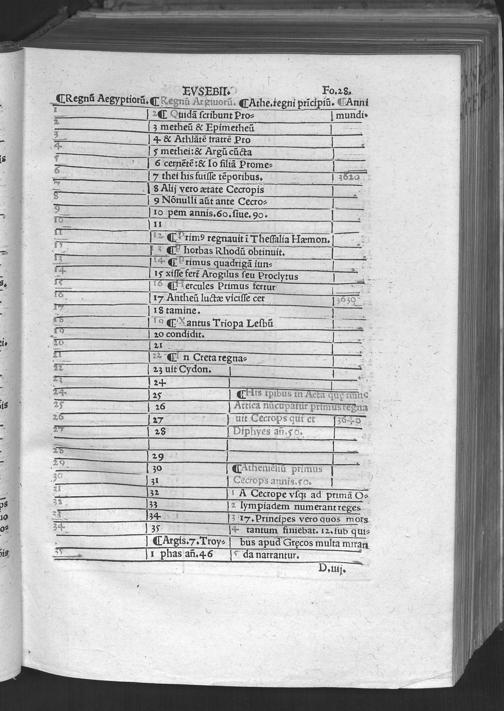 EVSEBII. Fo.28.
¶Regnũ Aegyptiorũ. ¶Regnũ Argiuorũ. ¶Athe.regni prĩcipiũ. ¶Anni
1 2 ¶Quidã scribunt Pro= mundi.
2 3 metheũ & Epimetheũ
3 4 & Athlãtẽ tratrẽ Pro
4 5 methei: & Argũ cũcta
5 6 cernẽtẽ: & Io filiã Prome=
6 7 thei his fuisse tẽporibus. 3620
7 8 Alij vero ætate Cecropis
8 9 Nõnulli aũt ante Cecro=
9 10 pem annis.60.siue.90.
10 11
11 12 ¶Primꝰ regnauit ĩ Thessalia Hæmon.
12 13 ¶ horbas Rhodũ obtinuit.
13 14 ¶Primus quadrigã iun=
14 15 xisse ferť Arogilus seu Proclytus
15 16 ¶Hercules Primus fertur
16 17 Antheũ luctæ vicisse cer 3630
17 18 tamine.
18 19 ¶Xantus Triopa Lesbũ
19 20 condidit.
20 21
21 22 ¶ n Creta regna=
22 23 uit Cydon.
23 24
24 25 ¶His tpibus in Acta quę nunc
25 26 Attica nũcupatur primus regna
26 27 uit Cecrops qui et 3640
27 28 Diphyes añ.50.
28 29
29 30 ¶Atheniẽsiũ primus
30 31 Cecrops annis.50.
31 32 1 A Cecrope vsq; ad primã O=
32 33 2 lympiadem numerant reges
33 34 3 17. Principes vero quos mors
34 35 4 tantum finiebat.12.sub qui=
¶Argis.7.Troy= bus apud Gręcos multa miran
35 1 phas añ.46 5 da narrantur.
D.iiij.